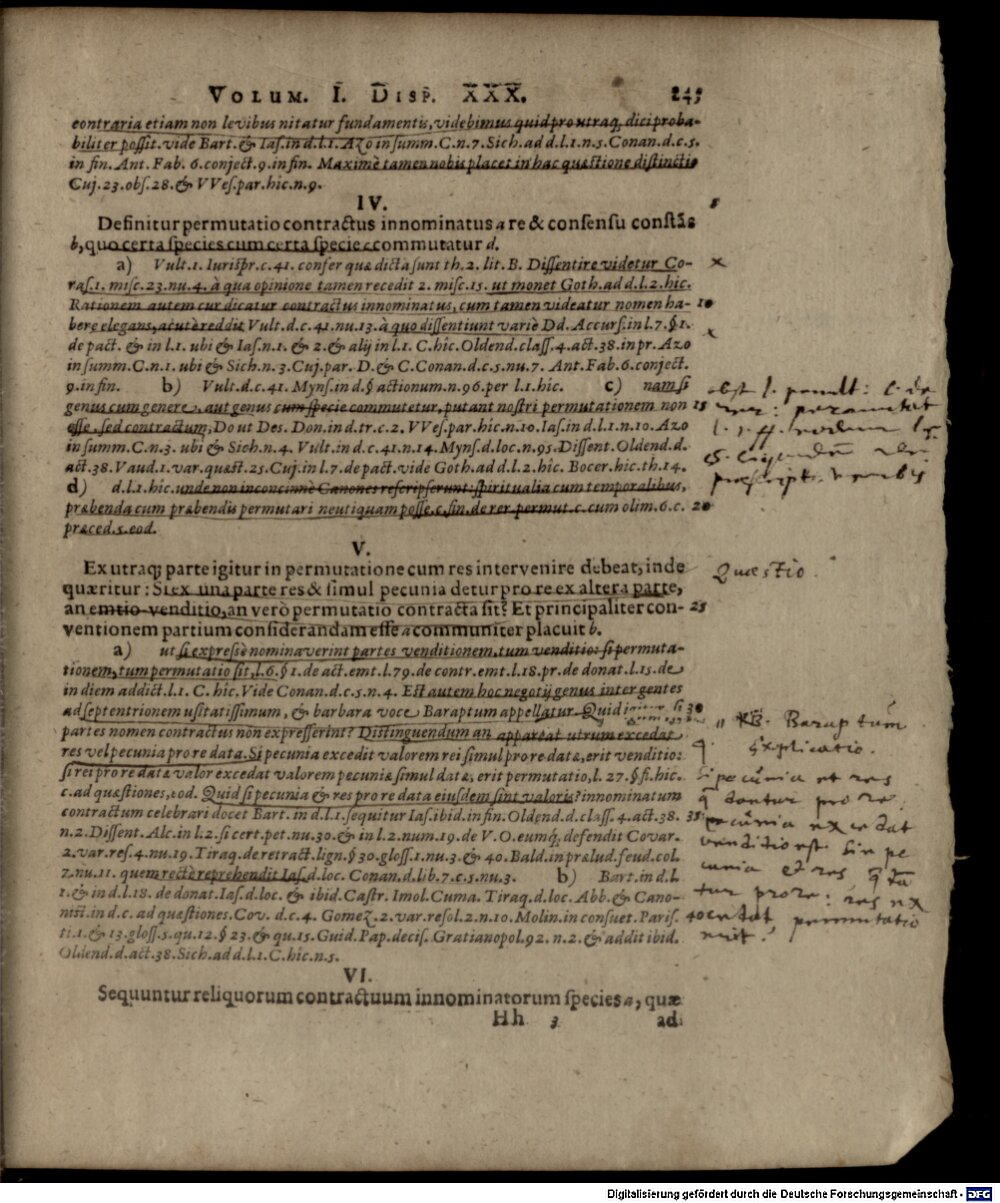 VOLUM. I. DISP. XXX. 245
contraria etiam non levibus nitatur fundamentis, videbimus quid pro utraq; dici proba-
biliter possit. vide Bart. & Ias. in d.l.1. Azo in summ. C.n.7. Sich. ad d.l.1.n.5. Conan. d.c.5.
in fin. Ant. Fab. 6. conject. 9. in fin. Maximè tamen nobis placet in hac quæstione distinctio
Cuj. 23. obs. 28. & VVes. par. hîc. n. 9.
IV.
Definitur permutatio contractus innominatus a re & consensu constās
b, quo certa species cum certa specie c commutatur d.
a) Vult. 1. Iurispr. c. 41. confer quæ dicta sunt th. 2. lit. B. Dissentire videtur Co-
ras. 1. misc. 23. nu. 4. à qua opinione tamen recedit 2. misc. 15. ut monet Goth. ad d.l.2. hîc.
Rationem autem cur dicatur contractus innominatus, cum tamen videatur nomen ha-
bere elegans, acutè reddit Vult. d.c. 41. nu. 13. à quo dissentiunt variè Dd. Accurs. in l. 7. § 1.
de pact. & in l.1. ubi & Ias. n. 1. & 2. & alij in l.1. C. hîc. Oldend. class. 4. act. 38. in pr. Azo
in summ. C.n.1. ubi & Sich. n. 3. Cuj. par. D. & C. Conan. d.c.5. nu. 7. Ant. Fab. 6. conject.
9. in fin. b) Vult. d.c. 41. Myns. in d. § actionum. n. 96. per l.1. hîc. c) nam si
genus cum genere, aut genus cum specie commutetur, putant nostri permutationem non
esse, sed contractum, Do ut Des. Don. in d. tr. c. 2. VVes. par. hîc. n. 10. Ias. in d.l.1. n. 10. Azo
in summ. C.n.3. ubi & Sich. n. 4. Vult. in d.c. 41. n. 14. Myns. d. loc. n. 95. Dissent. Oldend. d.
act. 38. Vaud. 1. var. quæst. 25. Cuj. in l. 7. de pact. vide Goth. ad d.l.2. hîc. Bocer. hîc. th. 14.
d) d.l.1. hîc. unde non inconcinnè Canones rescripserunt: spiritualia cum temporalibus,
præbenda cum præbendis permutari neutiquam posse. c. fin. de rer. permut. c. cum olim. 6. c.
præced. 5. eod.
V.
Ex utraq; parte igitur in permutatione cum res intervenire debeat, inde
quæritur: Si ex una parte res & simul pecunia detur pro re ex altera parte,
an emtio-venditio, an verò permutatio contracta sit? Et principaliter con-
ventionem partium considerandam esse a communiter placuit b.
a) ut si expressè nominaverint partes venditionem, tum venditio: si permuta-
tionem, tum permutatio sit, l. 6. § 1. de act. emt. l. 79. de contr. emt. l. 18. pr. de donat. l. 15. de
in diem addict. l.1. C. hîc. Vide Conan. d.c.5. n. 4. Est autem hoc negotij genus inter gentes
ad septentrionem usitatissimum, & barbara voce Baraptum appellatur. Quid igitur si
partes nomen contractus non expresserint? Distinguendum an appareat utrum excedat
res vel pecunia pro re data. Si pecunia excedit valorem rei simul pro re datæ, erit venditio:
si rei pro re datæ valor excedat valorem pecuniæ simul datæ, erit permutatio, l. 27. § fi. hîc.
c. ad quæstiones, eod. Quid si pecunia & res pro re data eiusdem sint valoris? innominatum
contractum celebrari docet Bart. in d.l.1. sequitur Ias. ibid. in fin. Oldend. d. class. 4. act. 38.
n. 2. Dissent. Alc. in l. 2. si cert. pet. nu. 30. & in l. 2. num. 19. de V. O. eumq; defendit Covar.
2. var. res. 4. nu. 19. Tiraq. de retract. lign. § 30. gloss. 1. nu. 3. & 40. Bald. in prælud. feud. col.
7. nu. 11. quem rectè reprehendit Ias. d. loc. Conan. d. lib. 7. c. 5. nu. 3. b) Bart. in d.l.
1. & in d.l. 18. de donat. Ias. d. loc. & ibid. Castr. Imol. Cuma. Tiraq. d. loc. Abb. & Cano-
nist. in d.c. ad quæstiones. Cov. d.c. 4. Gomez. 2. var. resol. 2. n. 10. Molin. in consuet. Paris.
ti. 1. & 13. gloss. 5. qu. 12. § 23. & qu. 15. Guid. Pap. decis. Gratianopol. 92. n. 2. & addit ibid.
Oldend. d. act. 38. Sich. ad d.l.1. C. hîc. n. 5.
VI.
Sequuntur reliquorum contractuum innominatorum species a, quæ
Hh 3 ad
5
10
15
20
25
30
35
obst l. penult: C. de
rer: permutat
præscriptis verbis
Quæstio.
NB. Baraptum
Explicatio.
Si pecunia et res
q dantur pro re,
pecunia excedat
venditio est. Sin pe
cunia et res q dā
tur pro re: res ex
cedat permutatio
erit.
Digitalisierung gefördert durch die Deutsche Forschungsgemeinschaft - DFG